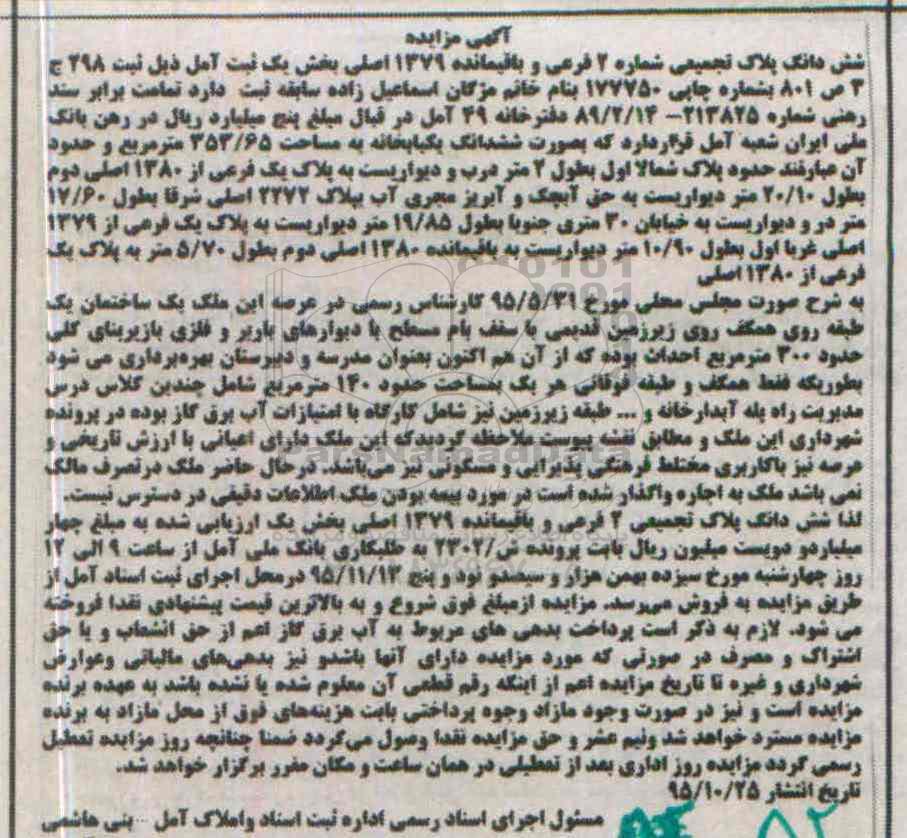 آگهی مزایده
شش دانگ پلاک تجمیعی شماره ۲ فرعی و باقیمانده ۱۳۷۹ اصلی بخش یک ثبت آمل ذیل ثبت ۲۹۸ ج
۳ ص ۸۰۱ بشماره چاپی ۱۷۷۷۵۰ بنام خانم مژگان اسماعیل زاده سابقه ثبت دارد تمامت برابر سند
رهنی شماره ۲۱۳۸۲۵– ۸۹/۲/۱۴ دفترخانه ۴۹ آمل در قبال مبلغ پنج میلیارد ریال در رهن بانک
ملی ایران شعبه آمل قراردارد که بصورت ششدانگ یکبابخانه به مساحت ۳۵۳/۶۵ مترمربع و حدود
آن عبارفند حدود پلاک شمالا اول بطول ۲ متر درب و دیواریست به پلاک یک فرعی از ۱۳۸۰ اصلی دوم
بطول ۲۰/۱۰ متر دیواریست به حق آبچک و آبریز مجری آب بپلاک ۲۲۷۲ اصلی شرقا بطول ۱۷/۶۰
متر در و دیواریست به خیابان ۳۰ متری جنوبا بطول ۱۹/۸۵ متر دیواریست به پلاک یک فرعی از ۱۳۷۹
اصلی غربا اول بطول ۱۰/۹۰ متر دیواریست به باقیمانده ۱۳۸۰ اصلی دوم بطول ۵/۷۰ متر به پلاک یک
فرعی از ۱۳۸۰ اصلی
به شرح صورت مجلس محلی مورخ ۹۵/۵/۳۱ کارشناس رسمی در عرصه این ملک یک ساختمان یک
طبقه روی همکف روی زیرزمین قدیمی با سقف بام مسطح با دیوارهای باربر و فلزی بازیربنای کلی
حدود ۳۰۰ مترمربع احداث بوده که از آن هم اکنون بعنوان مدرسه و دبیرستان بهره‌برداری می شود
بطوریکه فقط همکف و طبقه فوقانی هر یک بمساحت حدود ۱۴۰ مترمربع شامل چندین کلاس درس
مدیریت راه پله آبدارخانه و ... طبقه زیرزمین نیز شامل کارگاه با امتیازات آب برق گاز بوده در پرونده
شهرداری این ملک و مطابق نقشه پیوست ملاحظه گردیدکه این ملک دارای اعیانی با ارزش تاریخی و
عرصه نیز باکاربری مختلط فرهنگی پذیرایی و مسکونی نیز می‌باشد. درحال حاضر ملک درتصرف مالک
نمی باشد ملک به اجاره واگذار شده است در مورد بیمه بودن ملک اطلاعات دقیقی در دسترس نیست.
لذا شش دانگ پلاک تجمیعی ۲ فرعی و باقیمانده ۱۳۷۹ اصلی بخش یک ارزیابی شده به مبلغ چهار
میلیاردو دویست میلیون ریال بابت پرونده ش/۲۳۰۲ به طلبکاری بانک ملی آمل از ساعت ۹ الی ۱۲
روز چهارشنبه مورخ سیزده بهمن هزار و سیصدو نود و پنج ۹۵/۱۱/۱۳ درمحل اجرای ثبت اسناد آمل از
طریق مزایده به فروش میرسد. مزایده ازمبلغ فوق شروع و به بالاترین قیمت پیشنهادی نقدا فروخته
می شود. لازم به ذکر است پرداخت بدهی های مربوط به آب برق گاز اعم از حق انشعاب و یا حق
اشتراک و مصرف در صورتی که مورد مزایده دارای آنها باشدو نیز بدهی‌های مالیاتی وعوارض
شهرداری و غیره تا تاریخ مزایده اعم از اینکه رقم قطعی آن معلوم شده یا نشده باشد به عهده برنده
مزایده است و نیز در صورت وجود مازاد وجوه پرداختی بابت هزینه‌های فوق از محل مازاد به برنده
مزایده مسترد خواهد شد ونیم عشر و حق مزایده نقدا وصول می‌گردد ضمنا چنانچه روز مزایده تعطیل
رسمی گردد مزایده روز اداری بعد از تعطیلی در همان ساعت و مکان مقرر برگزار خواهد شد.
تاریخ انتشار ۹۵/۱۰/۲۵
مسئول اجرای اسناد رسمی اداره ثبت اسناد واملاک آمل – بنی هاشمی
ParsNamadData